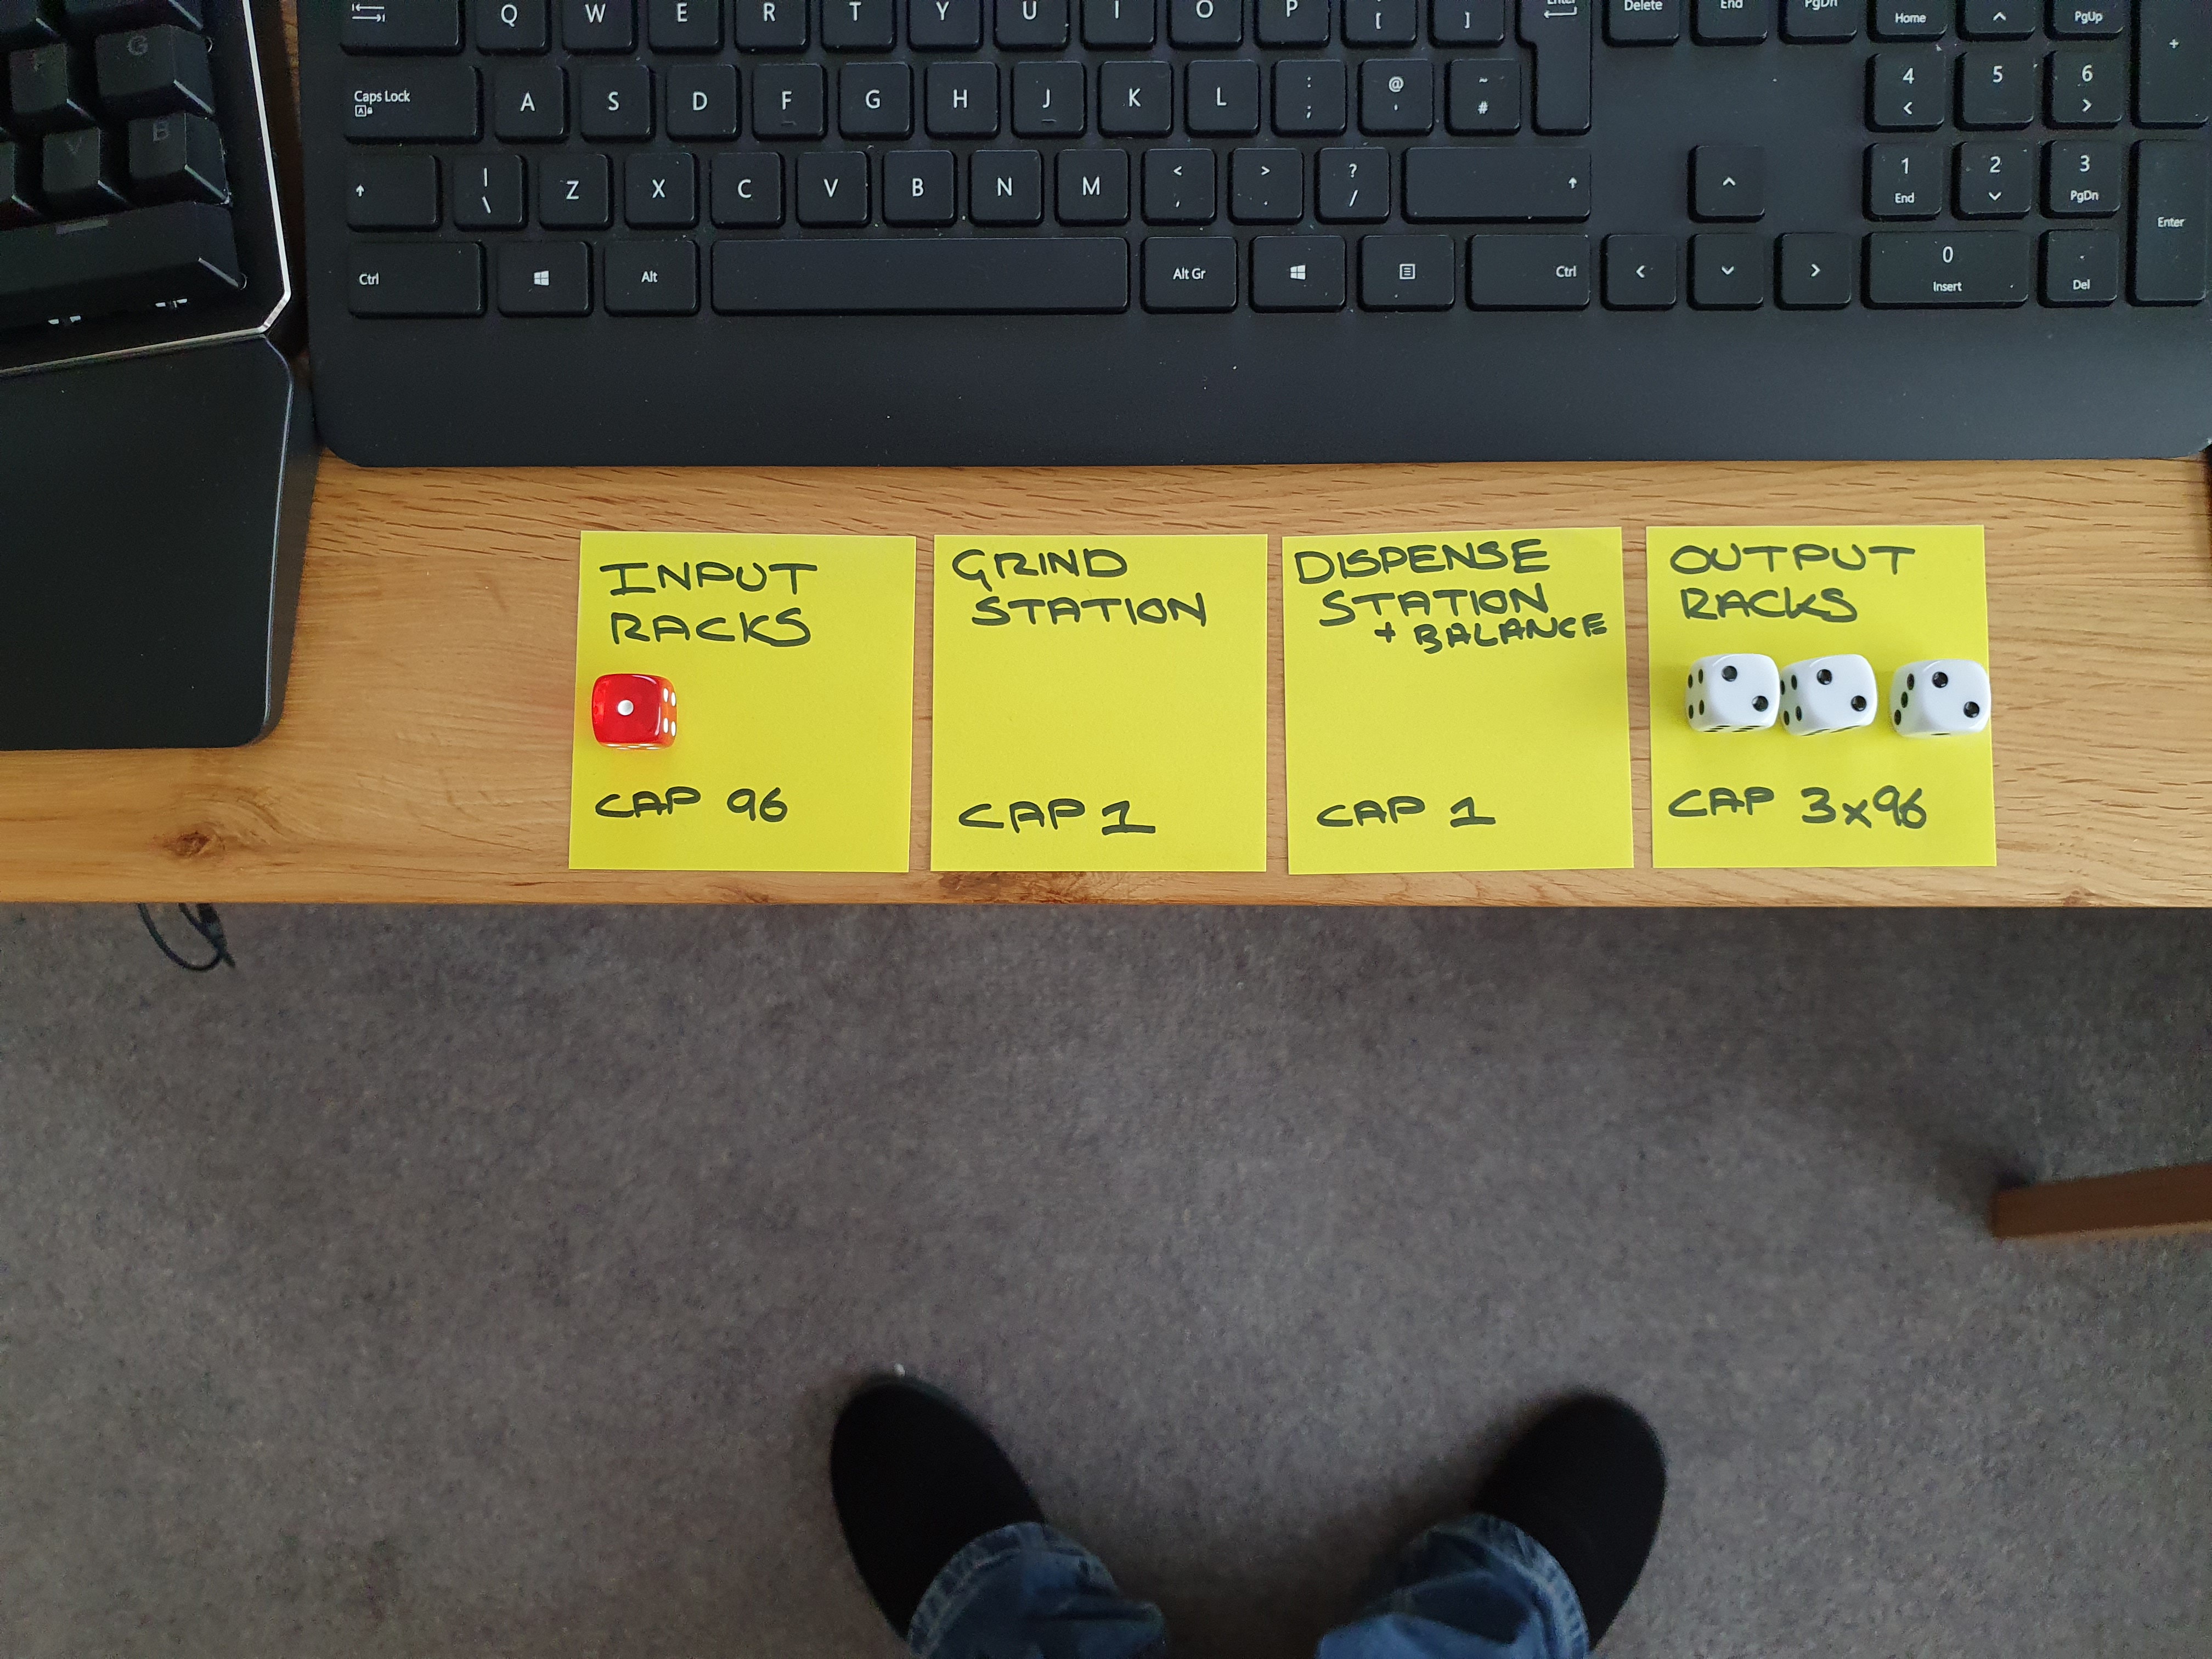 G
V
B
Q W E R T Y U I O P [ ] Enter Delete End PgDn Home PgUp
+
Caps Lock A S D F G H J K L : ; @ ' ~ # 4 5 6
| \ Z X C V B N M < , > . ? / 1 End 2 3 PgDn
Enter
Ctrl Alt Alt Gr Ctrl 0 Insert . Del
INPUT
RACKS
CAP 96
GRIND
STATION
CAP 1
DISPENSE
STATION
+ BALANCE
CAP 1
OUTPUT
RACKS
CAP 3x96